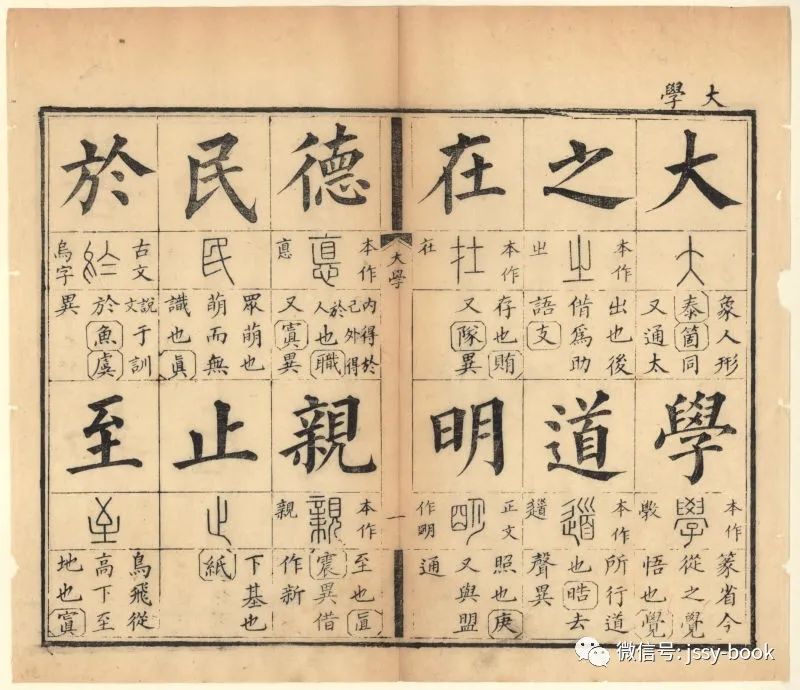 大學
大
大
象人形
泰箇同
又通太
學
本作
學
斆
篆省今
從之覺
悟也覺
之
本作
㞢
出也後
借爲助
語支
道
本作
道
所行道
也皓去
聲異
在
本作
在
在
存也賄
又隊異
明
正文
明
作明
照也庚
又與盟
通
大學
一
德
本作
悳
悳
內得於
己外得
於人也職
又寘異
親
本作
親
親
至也眞
震異借
作新
民
民
眾萌也
萌而無
識也眞
止
止
下基也
紙
於
古文
於
烏字
說文于訓
於魚虞
異
至
至
鳥飛從
高下至
地也寘
微信号: jssy-book